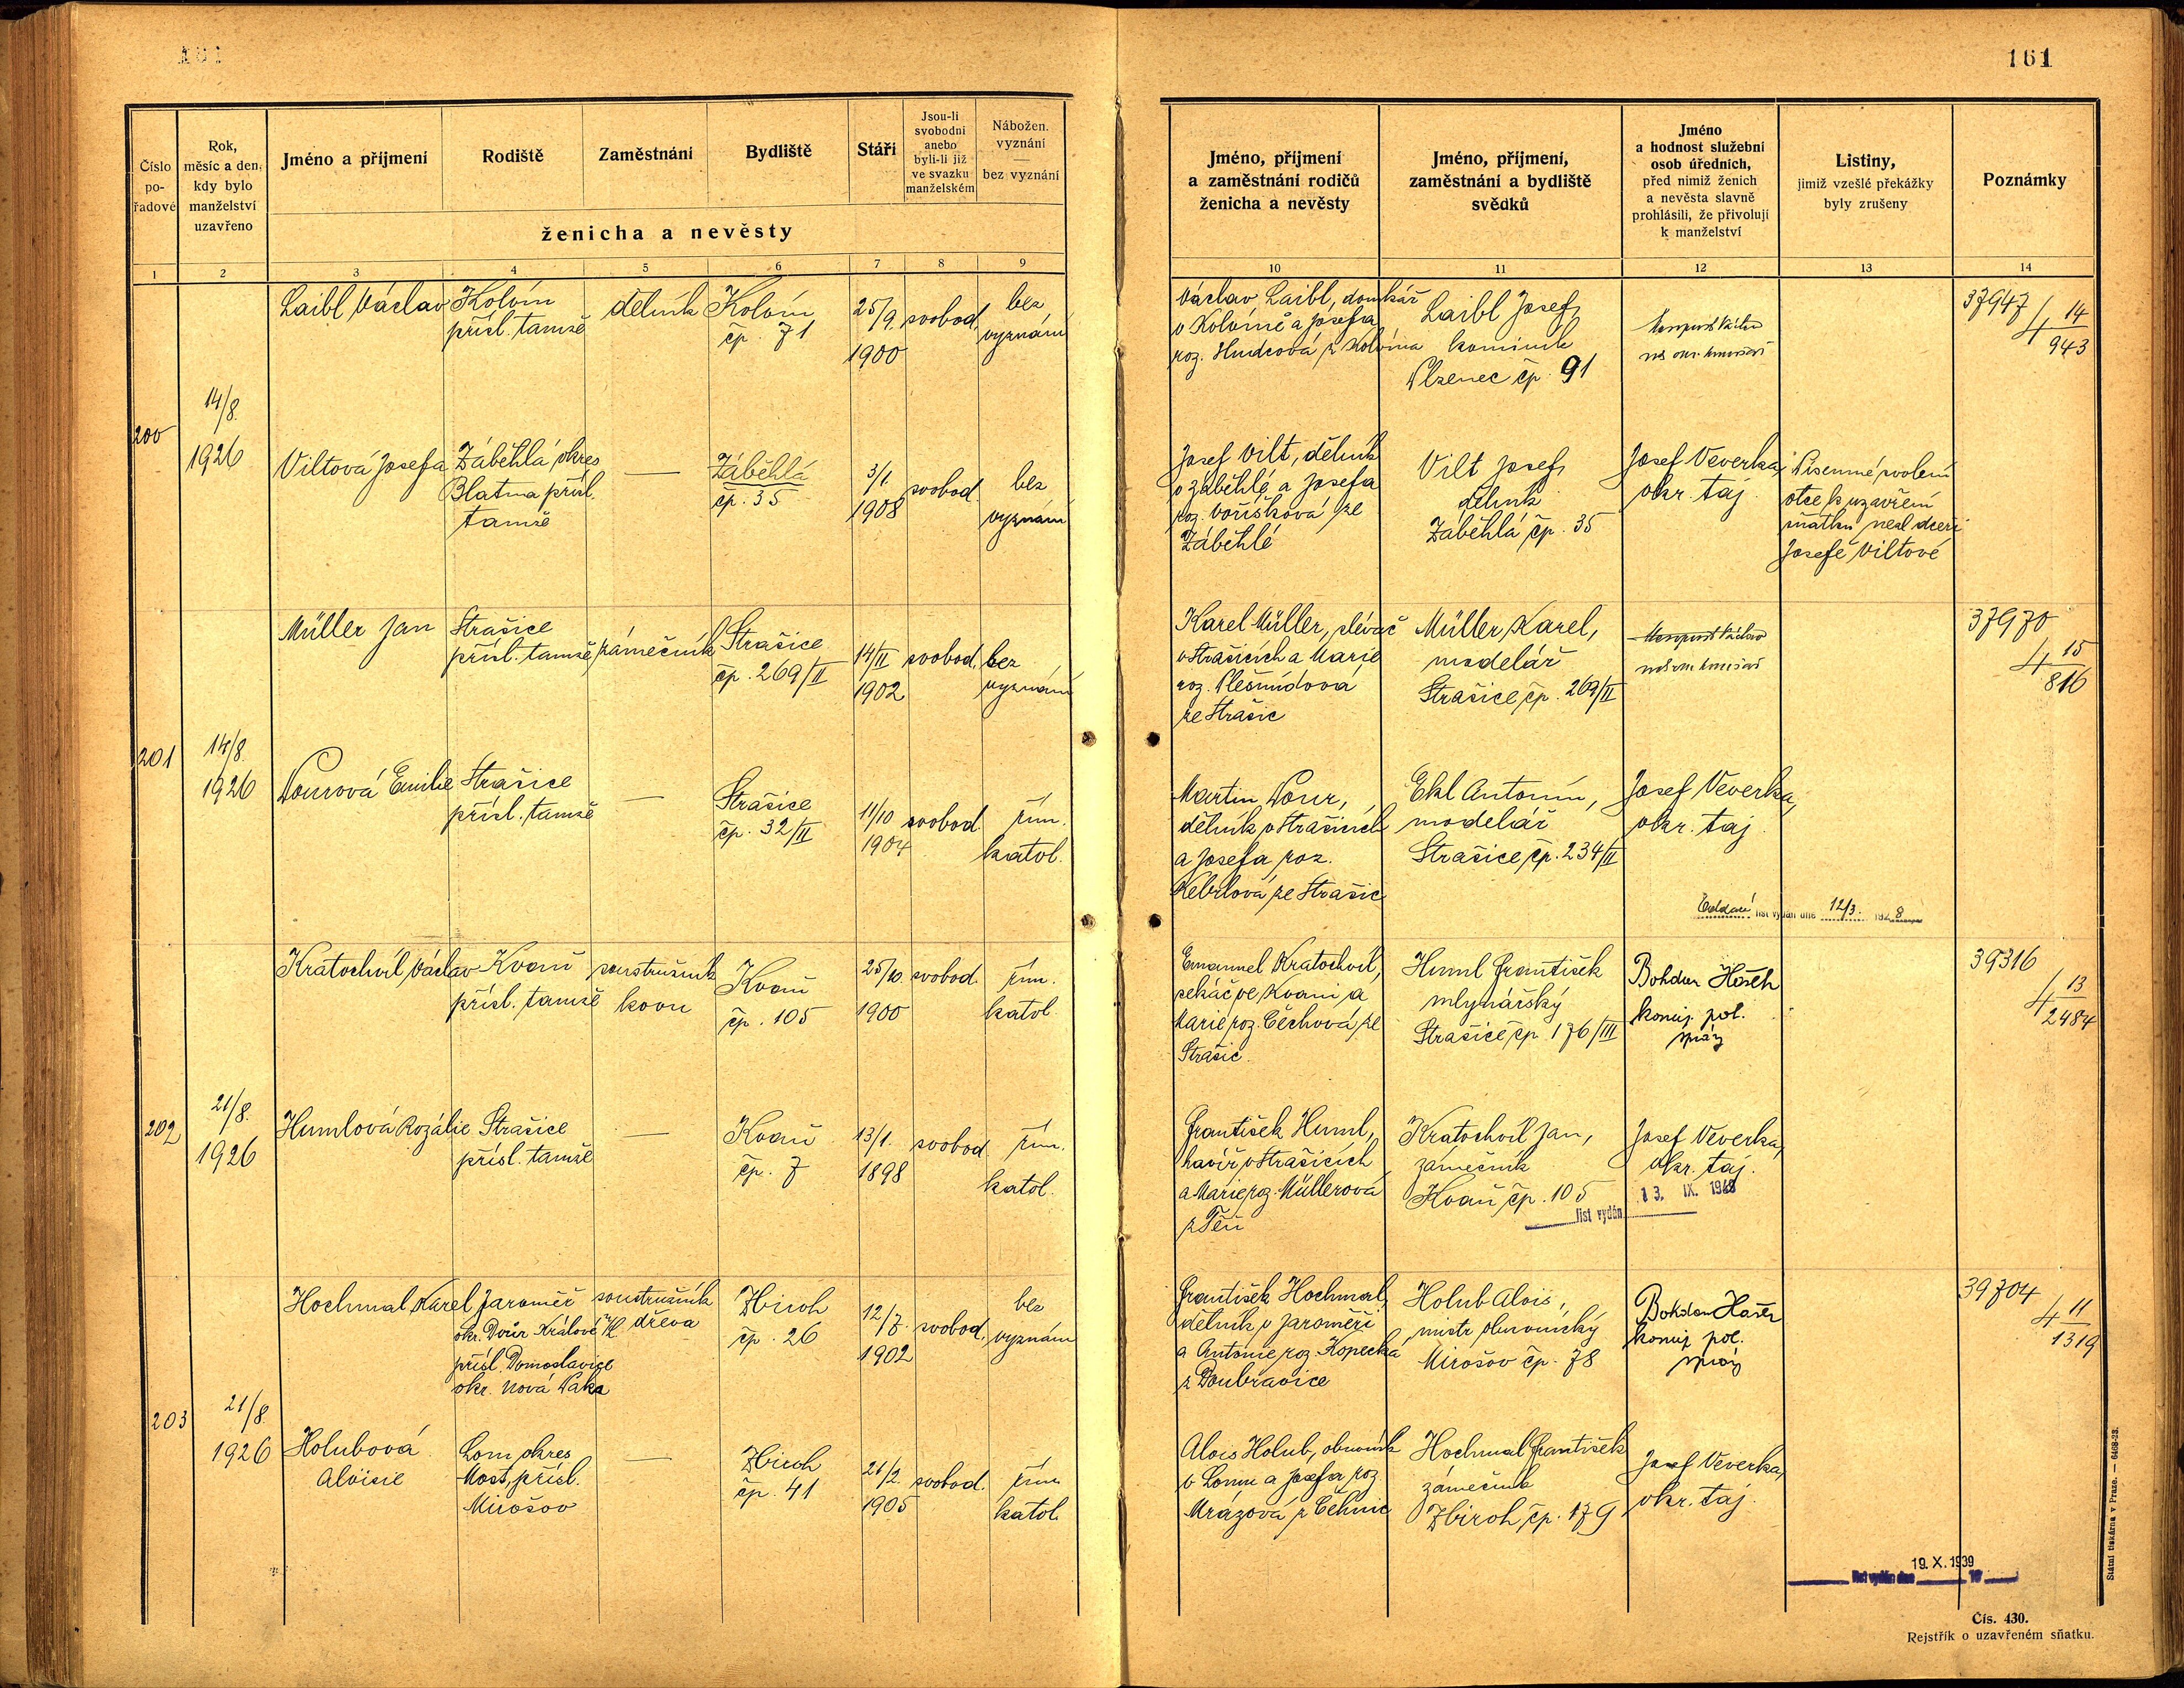 161
161
Číslo
po-
řadové
Rok,
měsíc a den,
kdy bylo
manželství
uzavřeno
Jméno a příjmení
Rodiště
Zaměstnání
Bydliště
Stáří
Jsou-li
svobodni
anebo
byli-li již
ve svazku
manželském
Nábožen.
vyznání
—
bez vyznání
ženicha a nevěsty
1 2 3 4 5 6 7 8 9
Jméno, příjmení
a zaměstnání rodičů
ženicha a nevěsty
Jméno, příjmení,
zaměstnání a bydliště
svědků
Jméno
a hodnost služební
osob úředních,
před nimiž ženich
a nevěsta slavně
prohlásili, že přivolují
k manželství
Listiny,
jimiž vzešlé překážky
byly zrušeny
Poznámky
10 11 12 13 14
200
14/8.
1926
Laibl Václav
Kolvín
přísl. tamže
dělník
Kolvín
čp. 71
25/9.
1900
svobod.
bez
vyznání
Václav Laibl, domkář
v Kolvíně a Josefa
roz. Hudcová z Kolvína
Laibl Josef,
kominík
Plzenec čp. 91
37947
4 14/943
Viltová Josefa
Záběhlá okres
Blatna přísl.
tamže
—
Záběhlá
čp. 35
3/1.
1908
svobod.
bez
vyznání
Josef Vilt, dělník
v Záběhlé a Josefa
roz. Voříšková ze
Záběhlé
Vilt Josef,
dělník
Záběhlá čp. 35
Josef Veverka,
okr. taj.
Písemné svolení
otce k uzavření
sňatku nezl. dceři
Josefě Viltové
201
14/8.
1926
Müller Jan
Strašice
přísl. tamže
zámečník
Strašice
čp. 269/II
14/II
1902
svobod.
bez
vyznání
Karel Müller, slévač
v Strašicích a Marie
roz.
ze Strašic
Müller Karel,
modelář
Strašice čp. 269/II
37970
4 15/816
Nourová Emilie
Strašice
přísl. tamže
—
Strašice
čp. 32/II
11/10
1904
svobod.
řím.
katol.
Martin Nour,
dělník v Strašicích
a Josefa roz.
Kebrlová ze Strašic
Ekl Antonín,
modelář
Strašice čp. 234/II
Josef Veverka,
okr. taj.
Oddací list vydán dne 12/3. 1928
202
21/8.
1926
Kratochvíl Václav
Kvaň
přísl. tamže
soustružník
kovu
Kvaň
čp. 105
25/10.
1900
svobod.
řím.
katol.
Emanuel Kratochvíl,
sekáč ve Kvani a
Marie roz. Čechová ze
Strašic.
Huml František
mlynářský
Strašice čp. 176/III
Bohdan Hašek
konc. pol.
správy
39316
4 13/2484
Humlová Rozálie
Strašice
přísl. tamže
—
Kvaň
čp. 7
13/1.
1898
svobod.
řím.
katol.
František Huml,
havíř v Strašicích
a Marie roz. Müllerová
z Těň
Kratochvíl Jan,
zámečník
Kvaň čp. 105
Josef Veverka,
okr. taj.
list vydán 13. IX. 1948
203
21/8.
1926
Hochmal Karel
Jaroměř
okr. Dvůr Králové n/L.
přísl. Domoslavice
okr. Nová Paka
soustružník
dřeva
Zbiroh
čp. 26
12/7.
1902
svobod.
bez
vyznání
František Hochmal,
dělník v Jaroměři
a Antonie roz. Kopecká
z Doubravice
Holub Alois,
mistr obuvnický
Mirošov čp. 78
Bohdan Hašek
konc. pol.
správy
39704
4 11/1319
Holubová
Aloisie
Lom, okres
Most, přísl.
Mirošov
—
Zbiroh
čp. 41
21/2.
1905
svobod.
řím.
katol.
Alois Holub, obuvník
v Lomu a Josefa roz.
Mrázová z Čehnic
Hochmal František
zámečník
Zbiroh čp. 179
Josef Veverka,
okr. taj.
19. X. 1939
list vydán dne 19
Státní tiskárna v Praze. — 6468-23.
Čís. 430.
Rejstřík o uzavřeném sňatku.